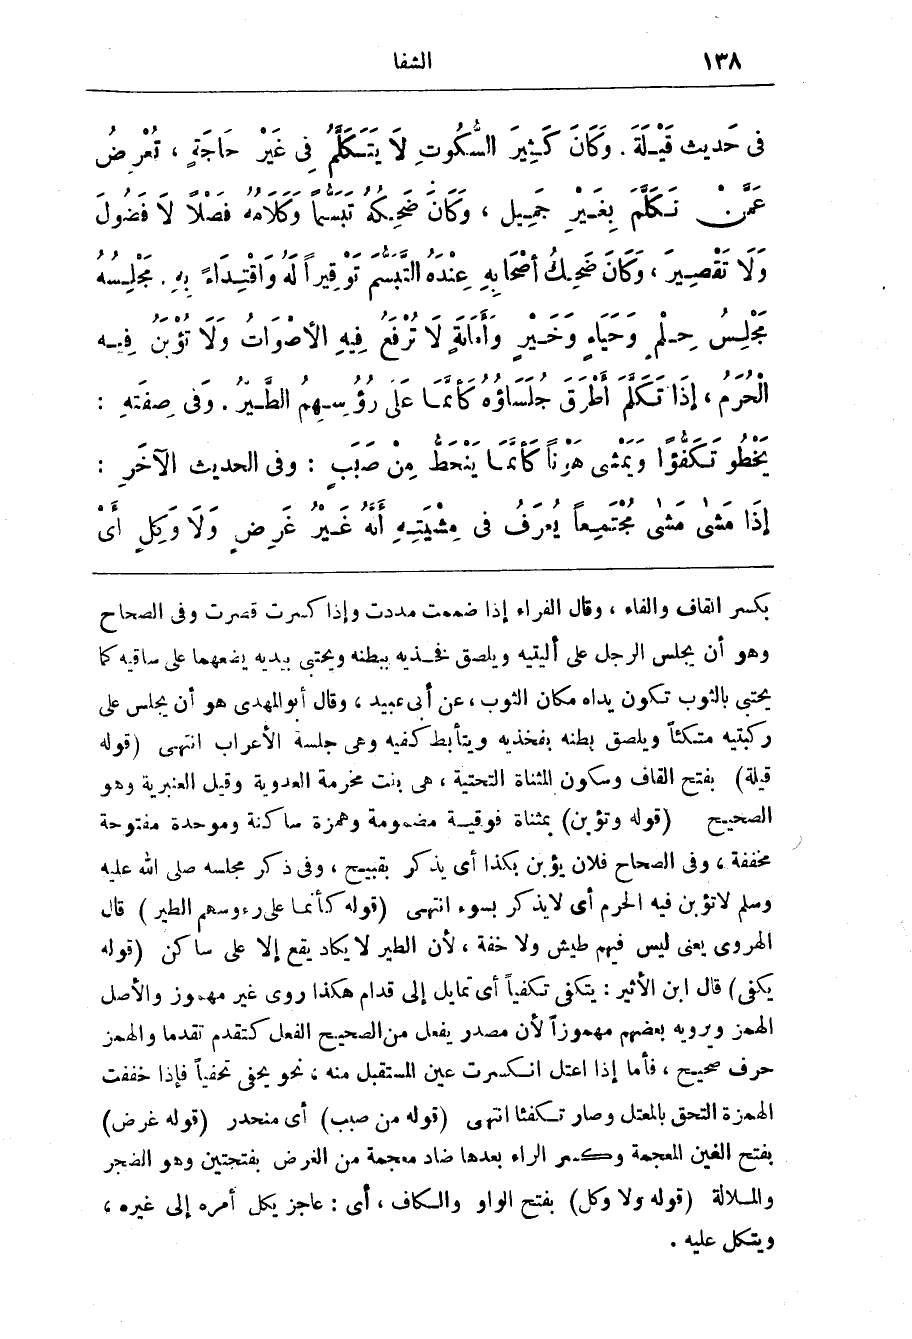 ١٣٨ الشفا
فِى حَدِيث قَيْلَةَ . وَكَانَ كَثِيرَ السُّكُوتِ لاَ يَتَكَلَّمُ فِى غَيْرِ حَاجَةٍ ، تُعْرِضُ
عَمَّنْ تَكَلَّمَ بِغَيْرِ جَمِيلٍ ، وَكَانَ ضَحِكُهُ تَبَسُّماً وَكَلَامُهُ فَصْلًا لَا فُضُولَ
وَلَا تَقْصِيرَ ، وَكَانَ ضَحِكُ أَصْحَابِهِ عِنْدَهُ التَّبَسُّمَ تَوْقِيراً لَهُ وَاقْتِدَاءً بِهِ . مَجْلِسُهُ
مَجْلِسُ حِلْمٍ وَحَيَاءٍ وَخَيْرٍ وَأَمَانَةٍ لَا تُرْفَعُ فِيهِ الأَصْوَاتُ وَلَا تُؤْبَنُ فِيهِ
الْحُرَمُ ، إِذَا تَكَلَّمَ أَطْرَقَ جُلَسَاؤُهُ كَأَنَّمَا عَلَى رُؤُسِهِمُ الطَّيْرُ . وَفِى صِفَتِهِ :
يَخْطُو تَكَفُّؤًا وَيَمْشِى هَوْناً كَأَنَّمَا يَنْحَطُّ مِنْ صَبَبٍ : وفى الحديث الآخَرِ :
إِذَا مَشَى مَشَى مُجْتَمِعاً يُعْرَفُ فى مِشْيَتِهِ أَنَّهُ غَيْرُ غَرِضٍ وَلَا وَكِلٍ أَىْ
بكسر القاف والفاء ، وقال الفراء إذا ضممت مددت وإذا كسرت قصرت وفى الصحاح
وهو أن يجلس الرجل على أليتيه ويلصق فخذيه ببطنه ويحتبى بيديه يضعهما على ساقيه كما
يحتبى بالثوب تكون يداه مكان الثوب ، عن أبى عبيد ، وقال أبو المهدى هو أن يجلس على
ركبتيه متكئاً ويلصق بطنه بفخذيه ويتأبط كفيه وهى جلسة الأعراب انتهى (قوله
قيلة) بفتح القاف وسكون المثناة التحتية ، هى بنت مخرمة العدوية وقيل العنبرية وهو
الصحيح (قوله وتؤبن) بمثناة فوقية مضمومة وهمزة ساكنة وموحدة مفتوحة
مخففة ، وفى الصحاح فلان يؤبن بكذا أى يذكر بقبيح ، وفى ذكر مجلسه صلى الله عليه
وسلم لاتؤبن فيه الحرم أى لايذكر بسوء انتهى (قوله كأنما على رءوسهم الطير ) قال
الهروى يعنى ليس فيهم طيش ولا خفة ، لأن الطير لا يكاد يقع إلا على ساكن (قوله
يكفى) قال ابن الأثير : يتكفى تكفياً أى تمايل إلى قدام هكذا روى غير مهموز والأصل
الهمز ويرويه بعضهم مهموزاً لأن مصدر يفعل من الصحيح الفعل كتقدم تقدما والهمز
حرف صحيح ، فأما إذا اعتل انكسرت عين المستقبل منه ، نحو يحفى تحفياً فإذا خففت
الهمزة التحق بالمعتل وصار تكفئا انتهى (قوله من صبب) أى منحدر (قوله غرض)
بفتح الغين المعجمة وكسر الراء بعدها ضاد معجمة من الغرض بفتحتين وهو الضجر
والملالة (قوله ولا وكل) بفتح الواو والكاف ، أى : عاجز يكل أمره إلى غيره ،
ويتكل عليه .